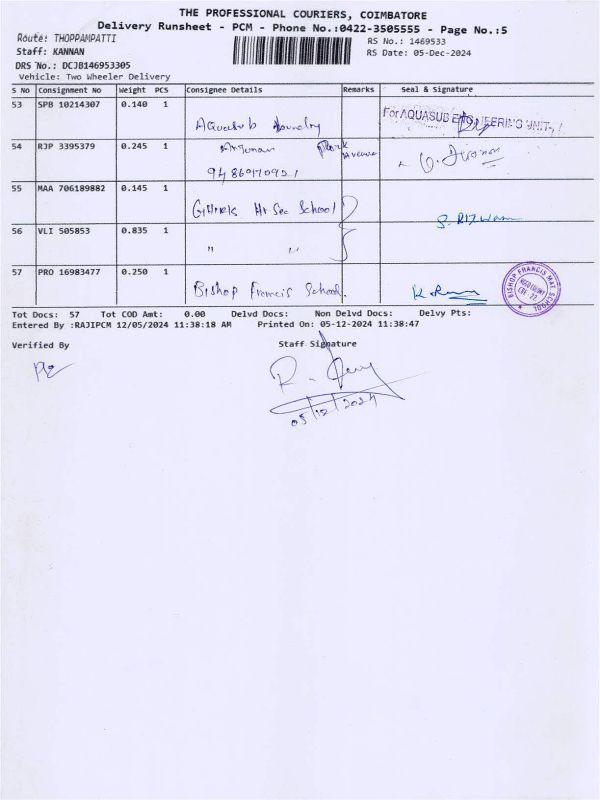 THE PROFESSIONAL COURIERS, COIMBATORE
Delivery Runsheet - PCM - Phone No.:0422-3505555 - Page No.:5
Route: THOPPAMPATTI
RS No.: 1469533
Staff: KANNAN
RS Date: 05-Dec-2024
DRS No.: DCJB146953305
Vehicle: Two Wheeler Delivery
S No Consignment No Weight PCS Consignee Details Remarks Seal & Signature
53 SPB 10214307 0.140 1
Aquasub
For AQUASUB ENGINEERING UNIT
54 RJP 3395379 0.245 1
Park Avenue
55 MAA 706189882 0.145 1
Hr Sec School
S. Rizwan
56 VLI 505853 0.835 1
" "
57 PRO 16983477 0.250 1
Bishop Francis School.
BISHOP FRANCIS MAT. SCHOOL
Tot Docs: 57 Tot COD Amt: 0.00 Delvd Docs: Non Delvd Docs: Delvy Pts:
Entered By :RAJIPCM 12/05/2024 11:38:18 AM Printed On: 05-12-2024 11:38:47
Verified By Staff Signature
05/12/2024